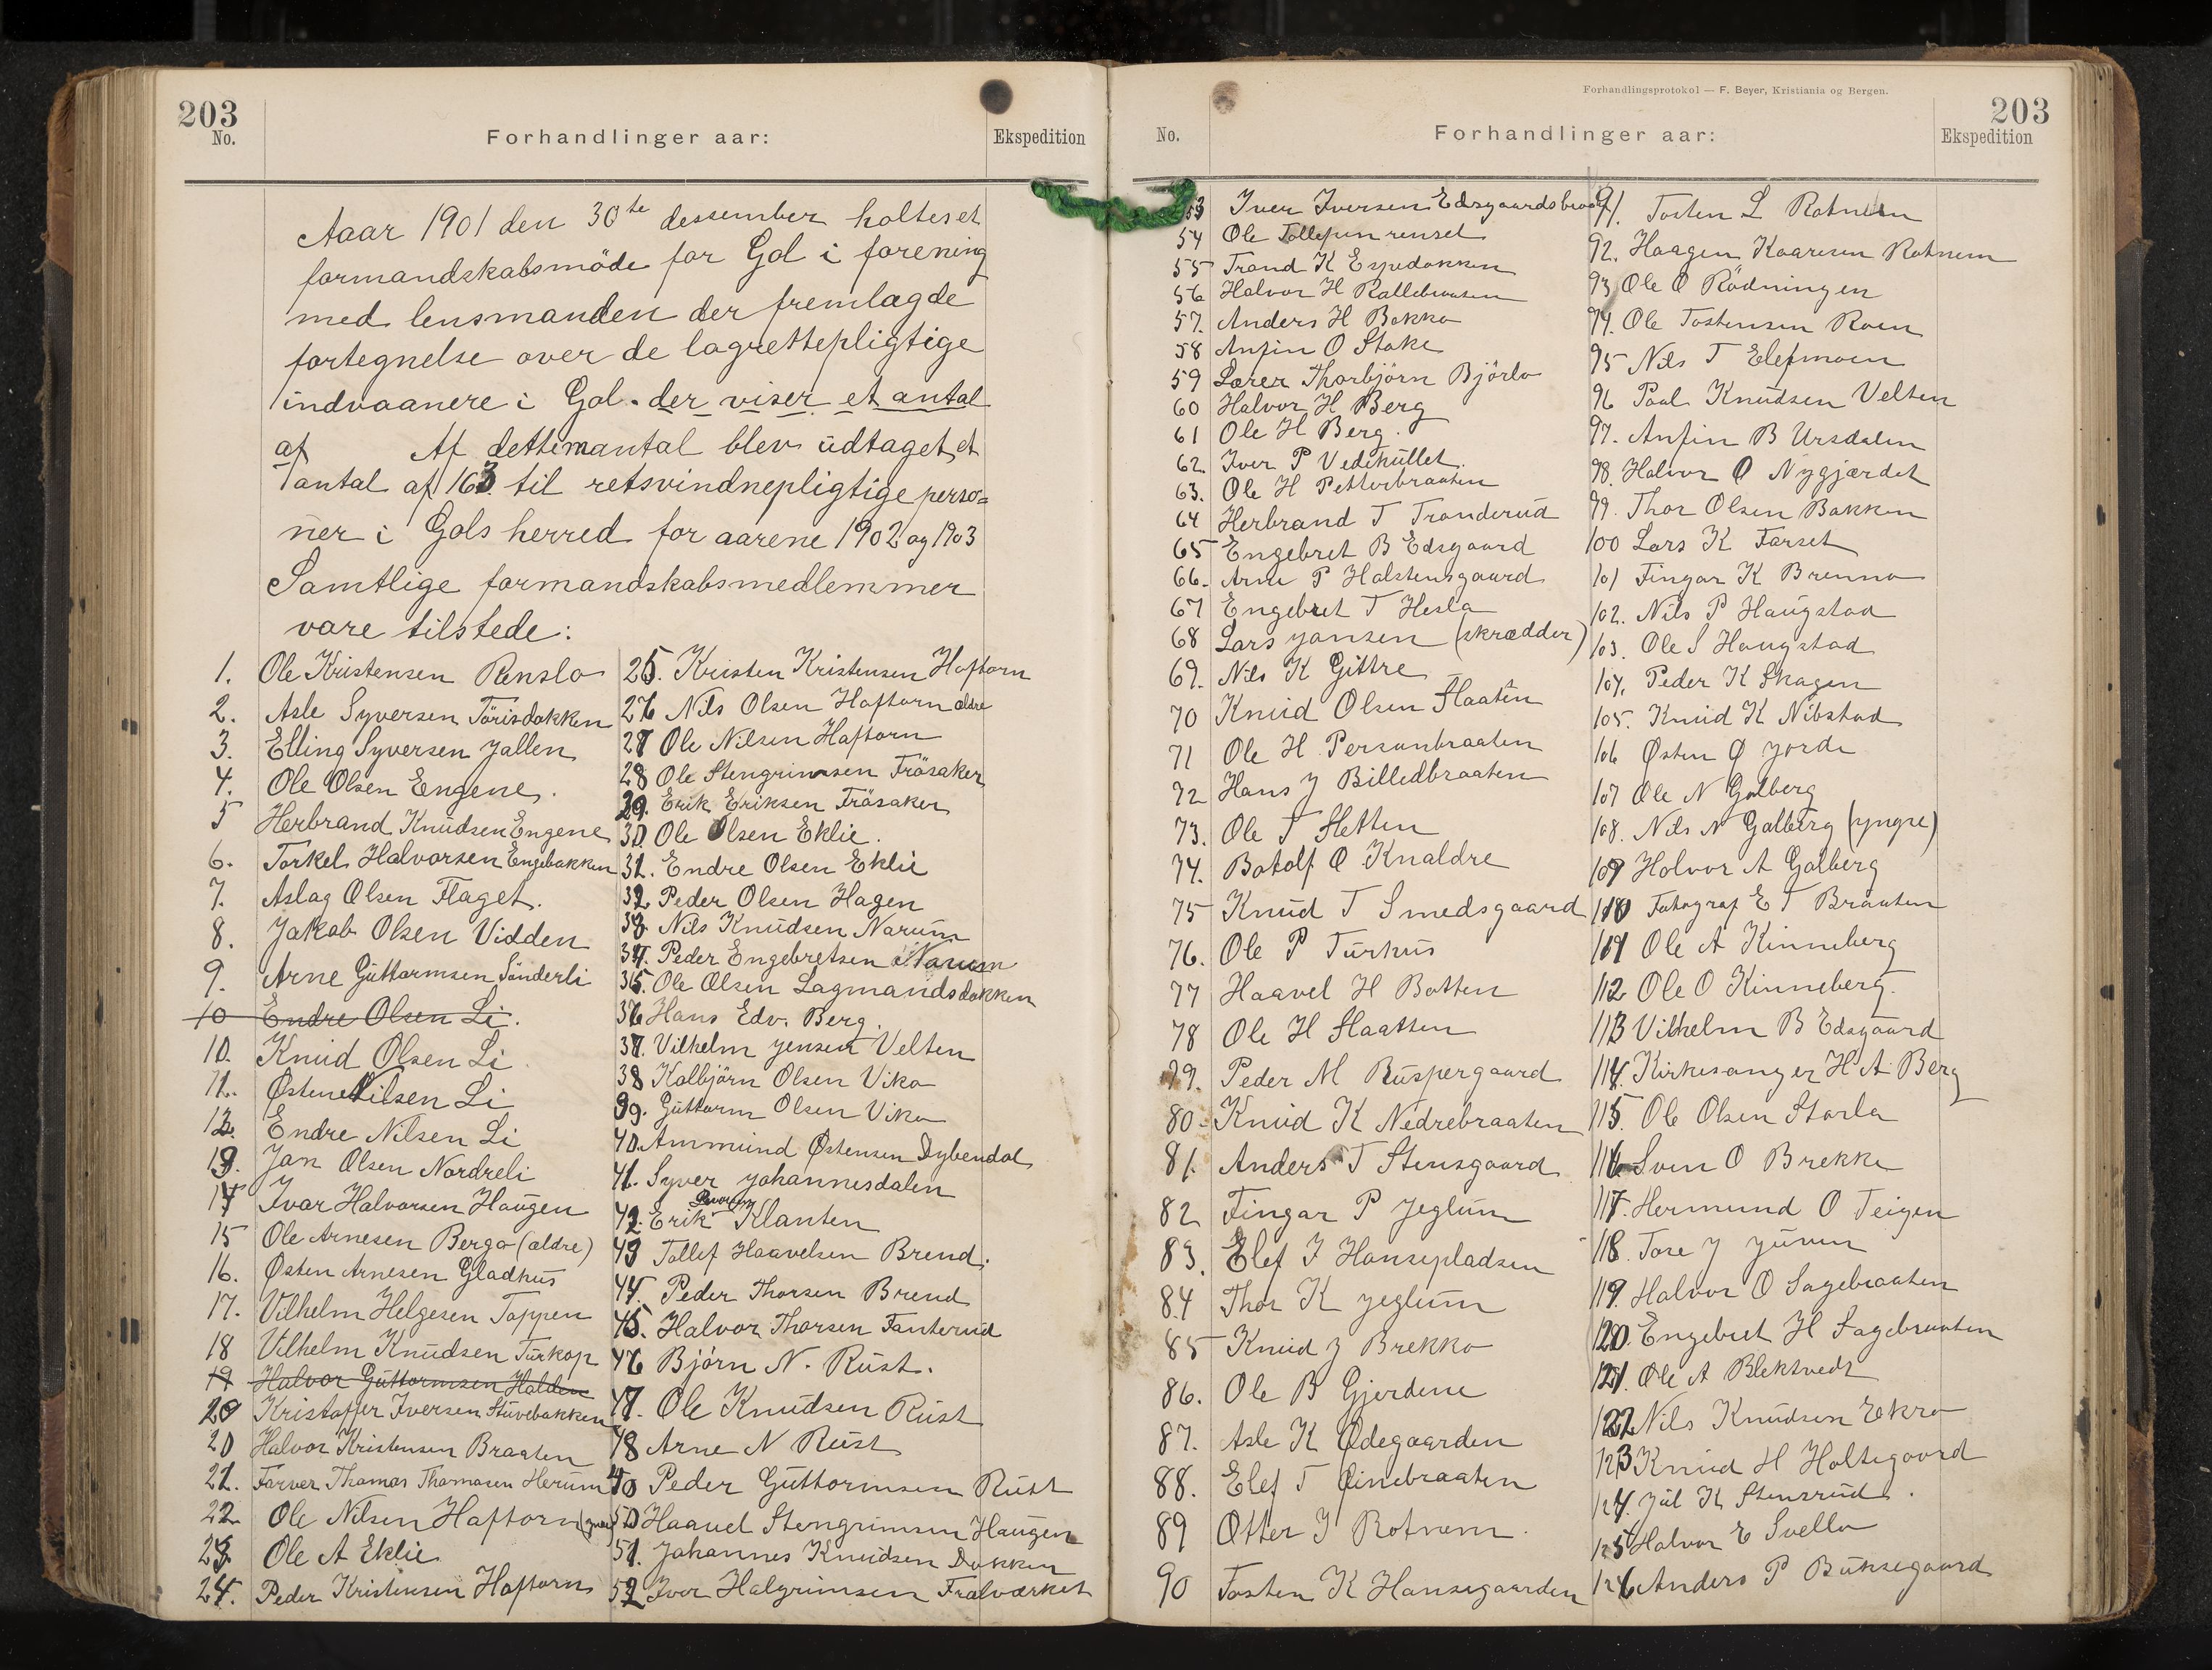 203
No.
Forhandlinger aar:
Ekspedition
Aaar 1901 den 30te dessember holtes et
formandskabsmöde for Gol i forening
med lensmanden der fremlagde
fortegnelse over de lagrettepligtige
indvaanere i Gol. der viser et antal
af Af dette mantal blev üdtaget et
antal af 163 til retsvindnepligtige perso=
ner i Gols herred for aarene 1902 og 1903
Samtlige formandskabsmedlemmer
vare tilstede:
1. Ole Kristensen Renslo
2. Asle Syversen Törisdokken
3. Elling Syversen Jallen
4. Ole Olsen Engene.
5 Herbrand Knüdsen Engene
6. Torkel Halvorsen Engebakken
7. Aslag Olsen Flaget.
8. Jakob Olsen Vidden
9. Arne Güttormsen Sönderli
10 Endre Olsen Li.
10. Knüd Olsen Li
11. Østen Nilsen Li
12. Endre Nilsen Li
13. Jan Olsen Nordreli
14 Ivar Halvorsen Haügen
15 Ole Arnesen Bergo (ældre)
16. Østen Arnesen Gladhüs
17. Vilhelm Helgesen Toppen
18 Vilhelm Knüdsen Türkop
19 Halvor Güttormsen Halden
20 Kristoffer Iversen Stüvebakken
20 Halvor Kristensen Braaten
21. Farver Thomas Thomasen Herüm
22 Ole Nilsen Haftorn
23. Ole A Eklie
24. Peder Kristensen Haftorn
25. Kristen Kristensen Haftorn
26 Nils Olsen Haftorn ældre
27 Ole Nilsen Haftorn
28 Ole Stengrimsen Fräsaker
29. Erik Eriksen Fräsaker
30 Ole Olsen Eklie.
31. Endre Olsen Eklie
32 Peder Olsen Hagen
33 Nils Knüdsen Narüm
34. Peder Engebretsen Narum
35. Ole Olsen Lagmandsdokken
36 Hans Edv. Berg.
37. Vilhelm Jensen Velten
38 Kolbjörn Olsen Viko
39. Güttorm Olsen Viko
40. Ammünd Østensen Dybendal
41. Syver Johannesdalen
42. Erik Klanten
43 Tollef Haavelsen Brend.
44. Peder Thorsen Brend
45. Halvor Thorsen Fanterüd
46 Björn N. Rüst.
47. Ole Knüdsen Rüst
48 Arne N Rüst
Peder Güttormsen Rüst
50 Haavel Stengrimsen Haügen
51. Johannes Knüdsen Dokken
52 Iver Halgrimsen Fralværket
Forhandlingsprotokol — F. Beyer, Kristiania og Bergen.
203
No.
Forhandlinger aar:
Ekspedition
53 Iver Iversen Edsgaardsbraat
54 Ole Tollefsen renset
55 Trond K Espedokken
56 Halvor H Rallebraaten
57. Anders H Bakko
58 Anfin O Stake
59 Lærer Thorbjörn Björlo
60 Halvor H Berg
61 Ole H Berg.
62 Iver P Vedeküllet.
63. Ole H Petterbraaten
64 Herbrand T Tronderüd
65 Engebret B Edsgaard
66. Arne P Halstensgaard
67 Engebret T Hesla
68 Lars Jansen (skrædder)
69. Nils K Gittre
70 Knüd Olsen Slaaten
71 Ole H Personbraaten
72 Hans J Billedbraaten
73. Ole T Sletten
74. Botolf O Knaldre
75 Knüd T Smedsgaard
76. Ole P Türhüs
77 Haavel H Botten
78 Ole H Slaatten
79. Peder M Rüspergaard
80 Knüd K Nedrebraaten
81. Anders T Stensgaard
82 Fingar P Jeglüm
83. Elef I Hansepladsen
84 Thor K Jeglüm
85 Knüd J Brekko
86. Ole B Gjerdene
87. Asle K Ødegaarden
88. Elef T Øinebraaten
89 Otter J Rotnem.
90 Tosten K Hansegaarden
91. Tosten L Rotnem
92. Haagen Kaaresen Rotnem
93 Ole O Rödningen
94. Ole Tostensen Roen
95 Nils T Elefmoen
96 Paal Knüdsen Velten
97. Anfin B Ursdalen
98. Halvor O Nygjærdet
99. Thor Olsen Bakken
100 Lars K Farset
101 Fingar K Brenno
102. Nils P Haügstad
103. Ole S Haugstad
104. Peder K Skagen
105. Knüd K Nibstad
106 Østen Ø Jorde
107 Ole N Golberg
108. Nils N Golberg (yngre)
109 Halvor A Golberg
110 Fotograf E T Braaten
111 Ole A Kinneberg
112 Ole O Kinneberg.
113 Vilhelm B Edsgaard
114. Kirkesanger H A Berg
115. Ole Olsen Storla
116 Sven O Brekke
117. Hermund O Teigen
118. Tore J Jüven
119. Halvor O Sagebraaten
120. Engebret H Sagebraaten
121. Ole A Blektvedt
122 Nils Knüdsen Ekro
123 Knüd H Holtegaard
124. Jül K Stensrüd.
125 Halvor E Svello
126 Anders P Büksegaard